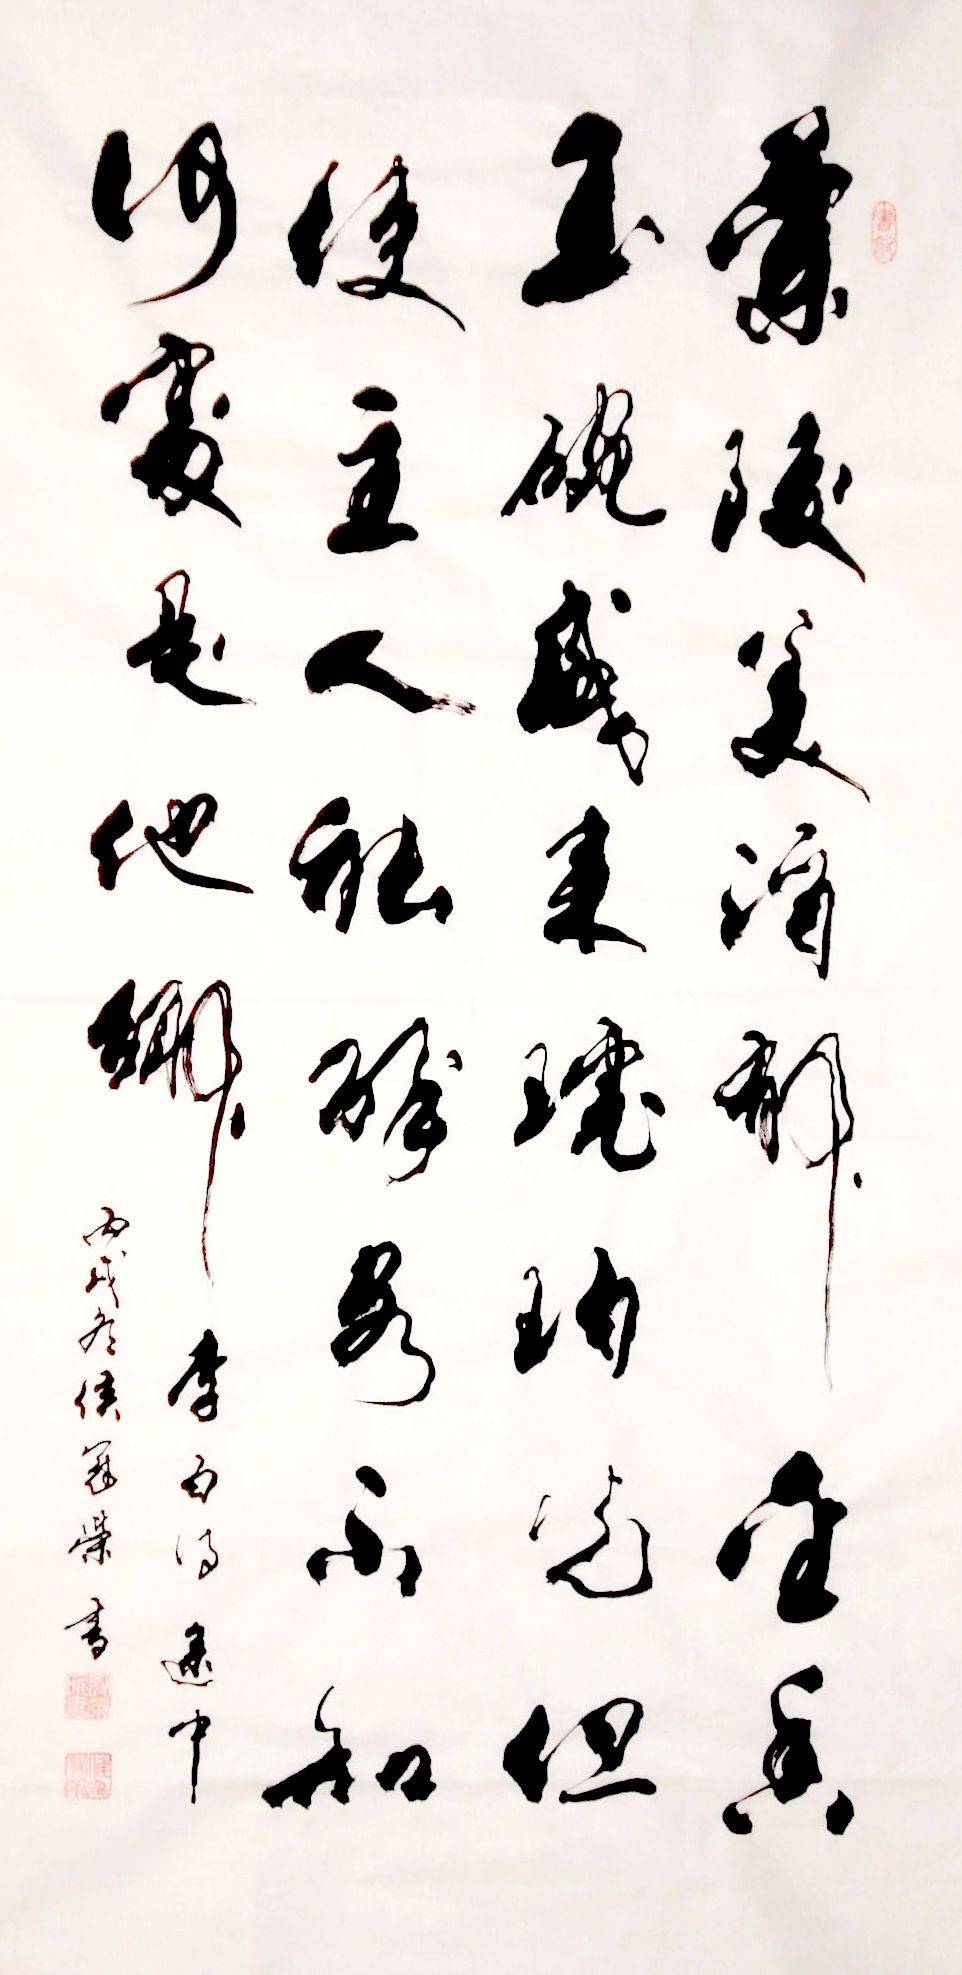 蘭陵美酒郁金香
玉碗盛来琥珀光但
使主人能醉客不知
何處是他鄉
李白诗途中
丙戌冬侯冠榮書